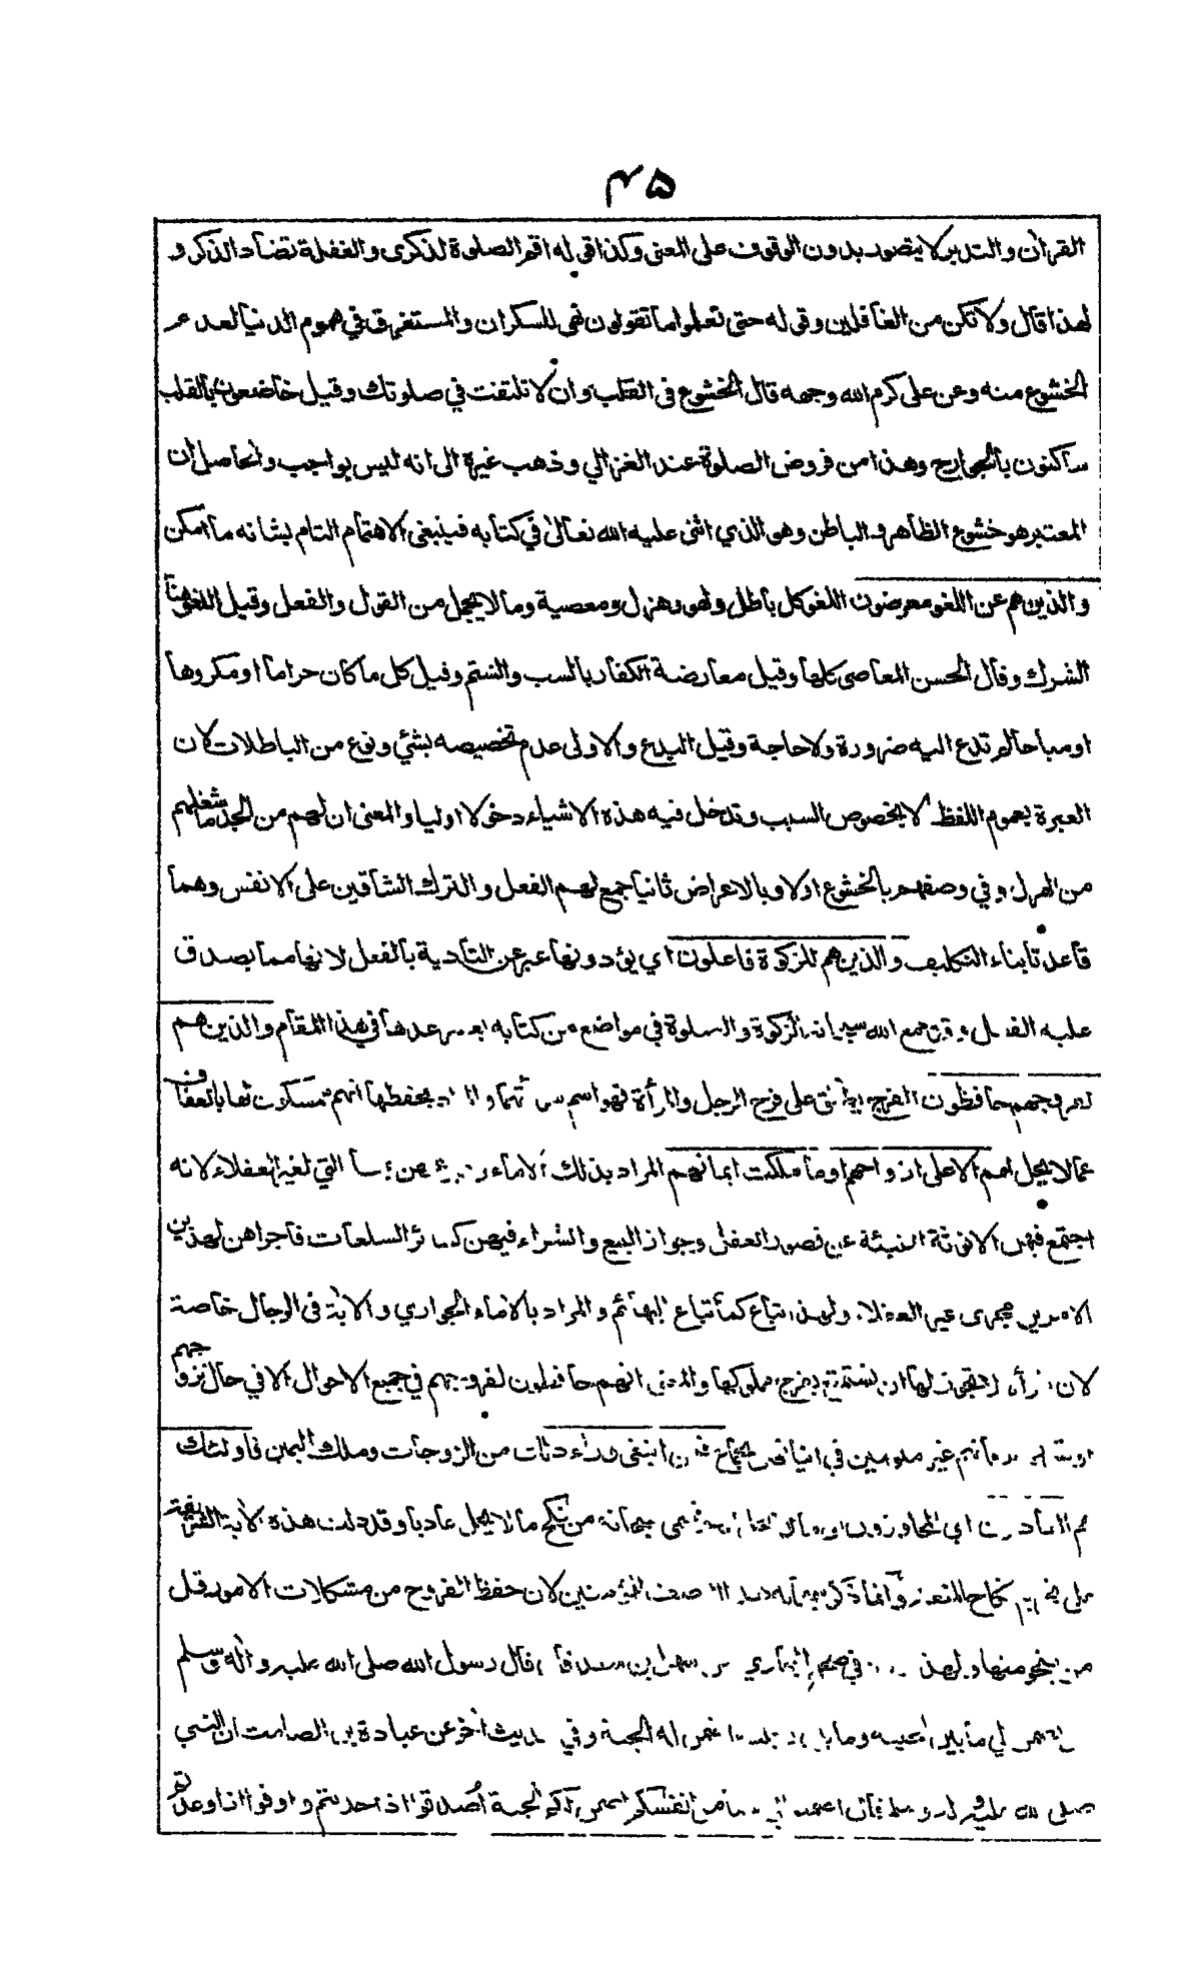 ۴۵
القرآن والتدبر لا يتصور بدون الوقوف على المعنى وكذا قوله اقم الصلوة لذكرى والغفلة تضاد الذكر و
لهذا قال ولا تكن من الغافلين وقوله حتى تعلموا ما تقولون نهى للسكران والمستغرق في هموم الدنيا لعدم
الخشوع منه وعن على كرم الله وجهه قال الخشوع فى القلب وان لا تلتفت في صلوتك وقيل خاضعون بالقلب
ساكنون بالجوارح وهذا من فروض الصلوة عند الغزالي وذهب غيره الى انه ليس بواجب والحاصل ان
المعتبر هو خشوع الظاهر والباطن وهو الذي اثنى عليه الله تعالى في كتابه فينبغى الاهتمام التام بشانه ما امكن
والذين هم عن اللغو معرضون اللغو كل باطل ولهو وهزل ومعصية وما لا يجمل من القول والفعل وقيل اللغو هنا
الشرك وقال الحسن المعاصى كلها وقيل معارضة الكفار بالسب والشتم وقيل كل ما كان حراما او مكروها
او مباحا لم تدع اليه ضرورة ولا حاجة وقيل البدع والاولى عدم تخصيصه بشئ ونوع من الباطلات لان
العبرة بعموم اللفظ لا بخصوص السبب وتدخل فيه هذه الاشياء دخولا اوليا والمعنى ان لهم من الجد ما شغلهم
من الهزل وفي وصفهم بالخشوع اولا وبالاعراض ثانيا جمع لهم الفعل والترك الشاقين على الانفس وهما
قاعدتا بناء التكليف والذين هم للزكوة فاعلون اي يؤدونها عبر عن التأدية بالفعل لانها مما يصدق
عليه الفعل وقد جمع الله سبحانه الزكوة والصلوة في مواضع من كتابه بعدها في هذا المقام والذين هم
لفروجهم حافظون الفرج يطلق على فرج الرجل والمرأة فهو اسم بحفظها انهم ممسكون لها بالعفاف
عما لا يحل لهم الا على ازواجهم او ما ملكت ايمانهم المراد بذلك الاماء التي لغير العقلاء لانه
اجتمع فيهن الانوثة المنبئة عن قصور العقل وجواز البيع والشراء فيهن كسائر السلعات فاجراهن لهذين
الامرين مجرى غير العقلاء ولهذا تباع كما تباع البهائم والمراد بالاماء الجواري والاية في الرجال خاصة
لان المرأة لا يجوز لها ان تستمتع بفرج مملوكها والمعنى انهم حافظون لفروجهم في جميع الاحوال الا في حال تزوجهم
غير ملومين في ابتغى وراء ذلك من الزوجات وملك اليمين فاولئك
هم العادون اي المجاوزون من نكح ما لا يحل عاديا وقد دلت هذه الاية الشريفة
على تحريم نكاح المتعة وانما ذكر المؤمنين لان حفظ الفروج من مشكلات الامور قل
من ينجو منها ولهذا في صحيح البخاري سهل ابن سعد قال قال رسول الله صلى الله عليه واله وسلم
من يضمن لي ما بين لحييه وما بين رجليه اضمن له الجنة وفي حديث اخر عن عبادة بن الصامت ان النبي
صلى الله عليه واله وسلم قال من انفسكم اضمن لكم الجنة اصدقوا اذا حدثتم واوفوا اذا وعدتم